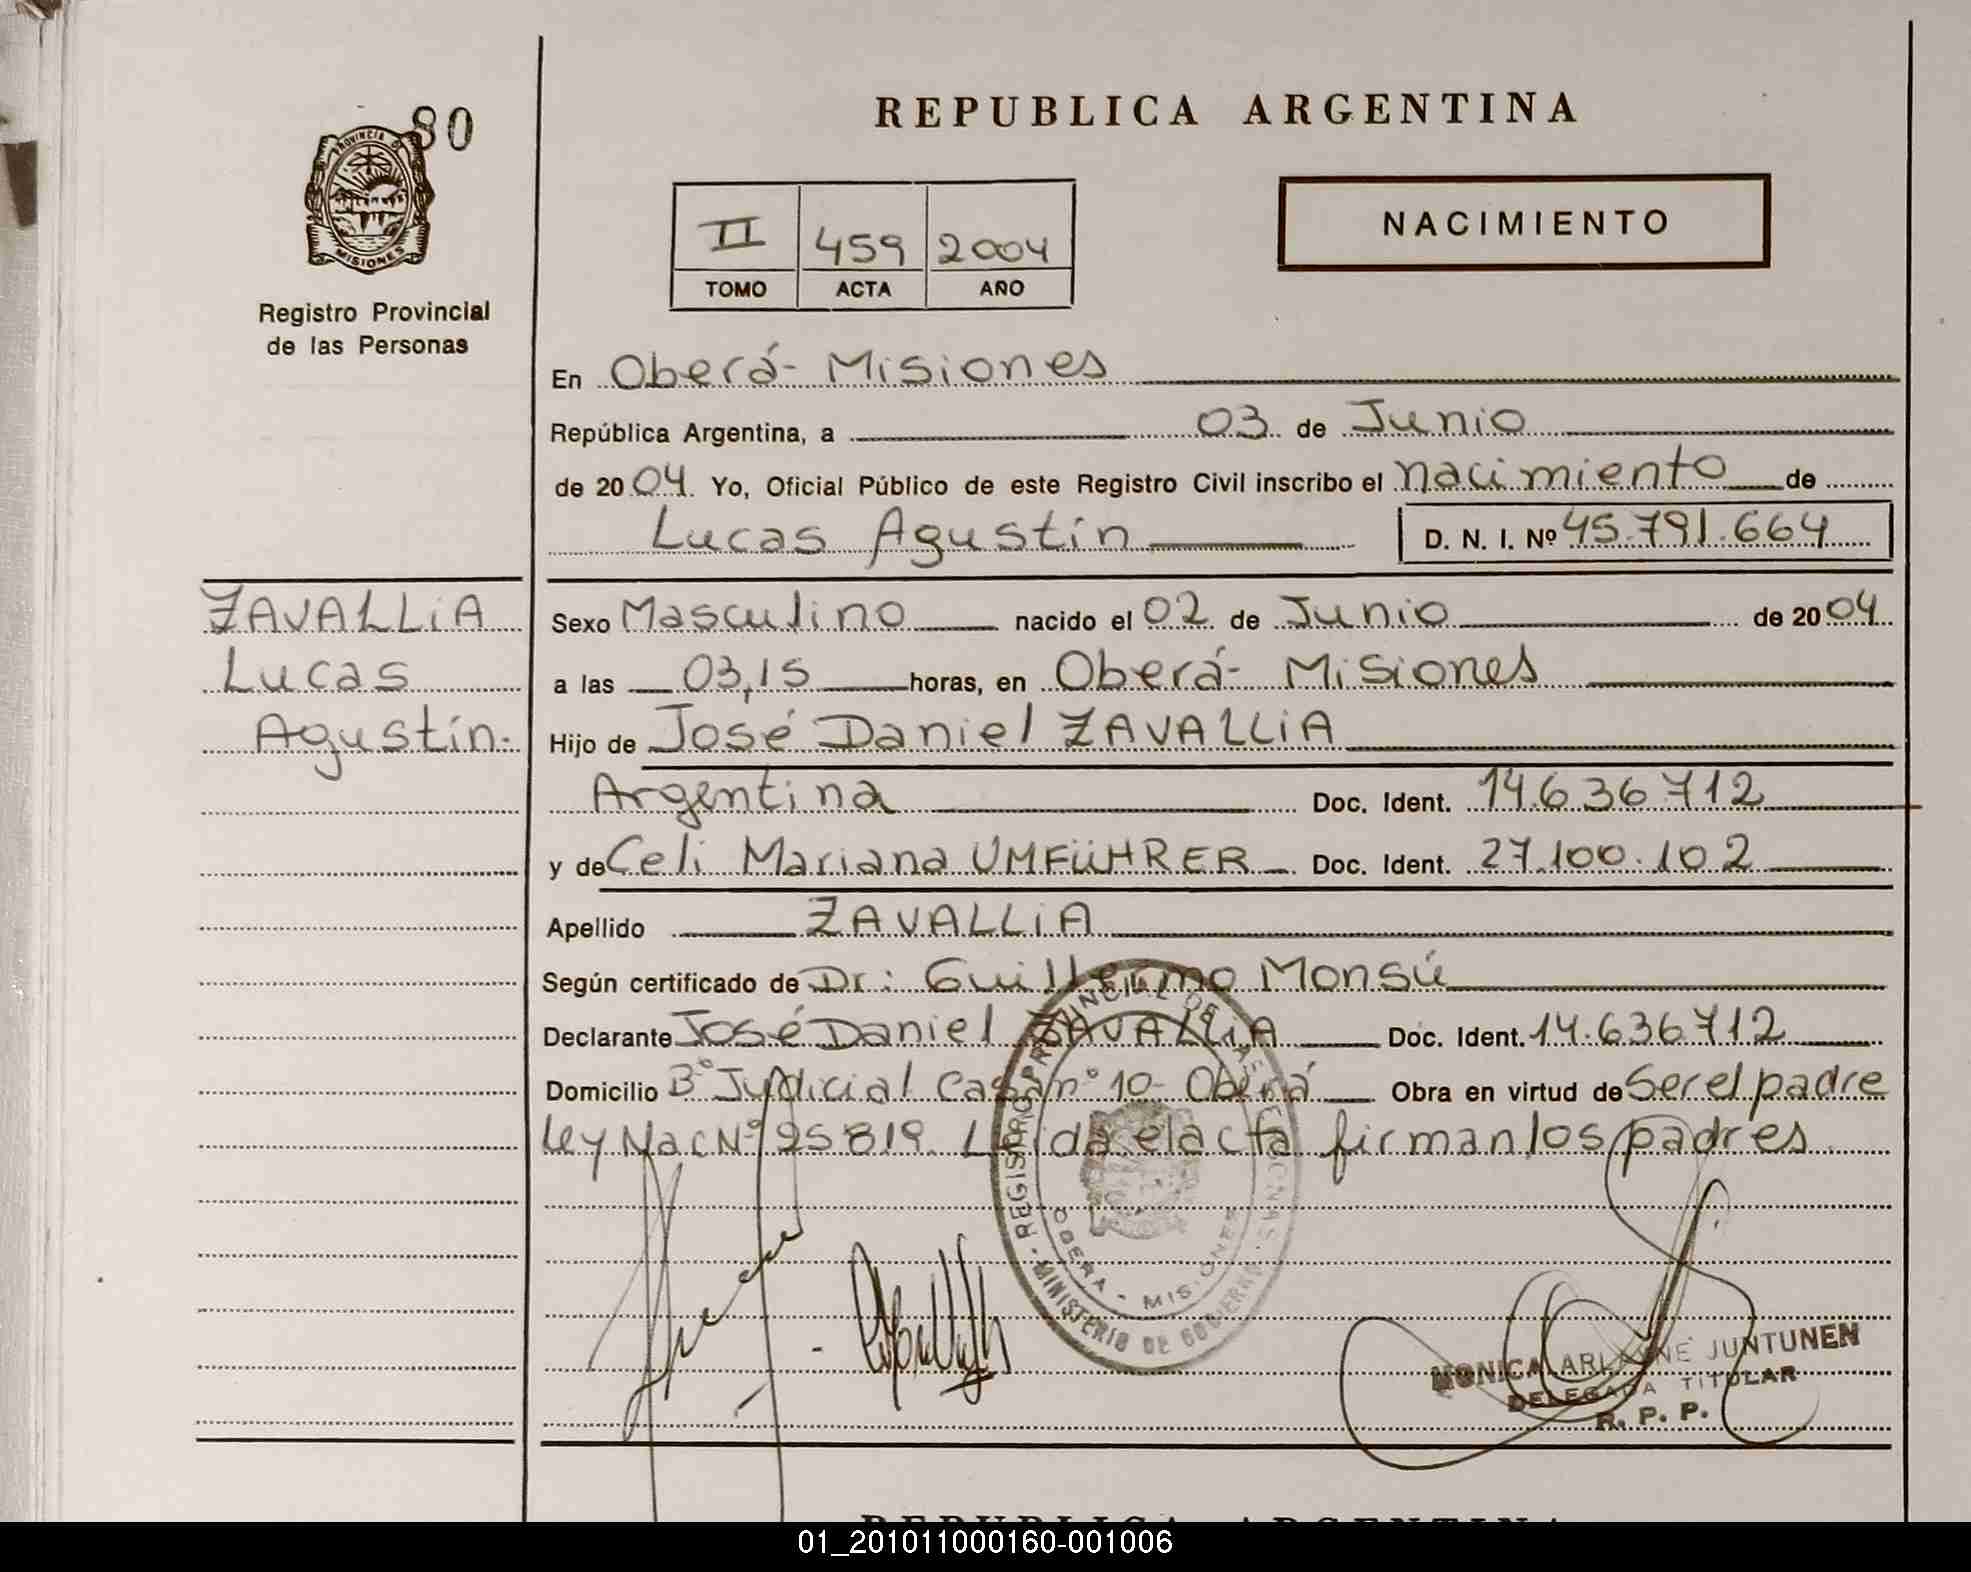 80
PROVINCIA DE
MISIONES
Registro Provincial
de las Personas
REPUBLICA ARGENTINA
II 459 2004
TOMO ACTA AÑO
NACIMIENTO
En Oberá- Misiones
República Argentina, a 03 de Junio
de 2004. Yo, Oficial Público de este Registro Civil inscribo el nacimiento de
Lucas Agustín D. N. I. Nº 45.791.664
ZAVALLiA
Lucas
Agustín.
Sexo Masculino nacido el 02 de Junio de 2004
a las 03,15 horas, en Oberá- Misiones
Hijo de José Daniel ZAVALLiA
Argentina Doc. Ident. 14.636712
y de Celi Mariana UMFÜHRER Doc. Ident. 27.100.102
Apellido ZAVALLiA
Según certificado de Dr: Guillermo Monsú
Declarante José Daniel ZAVALLiA Doc. Ident. 14.636712
Domicilio Bº Judicial Casa nº 10- Oberá Obra en virtud de Ser el padre
Ley Nac Nº 25819. Leida el acta firman los padres
REGISTRO PROVINCIAL DE LAS PERSONAS
MINISTERIO DE GOBIERNO
OBERA - MISIONES
MONICA ARLENNE JUNTUNEN
DELEGADA TITULAR
R. P. P.
REPUBLICA ARGENTINA
01_201011000160-001006